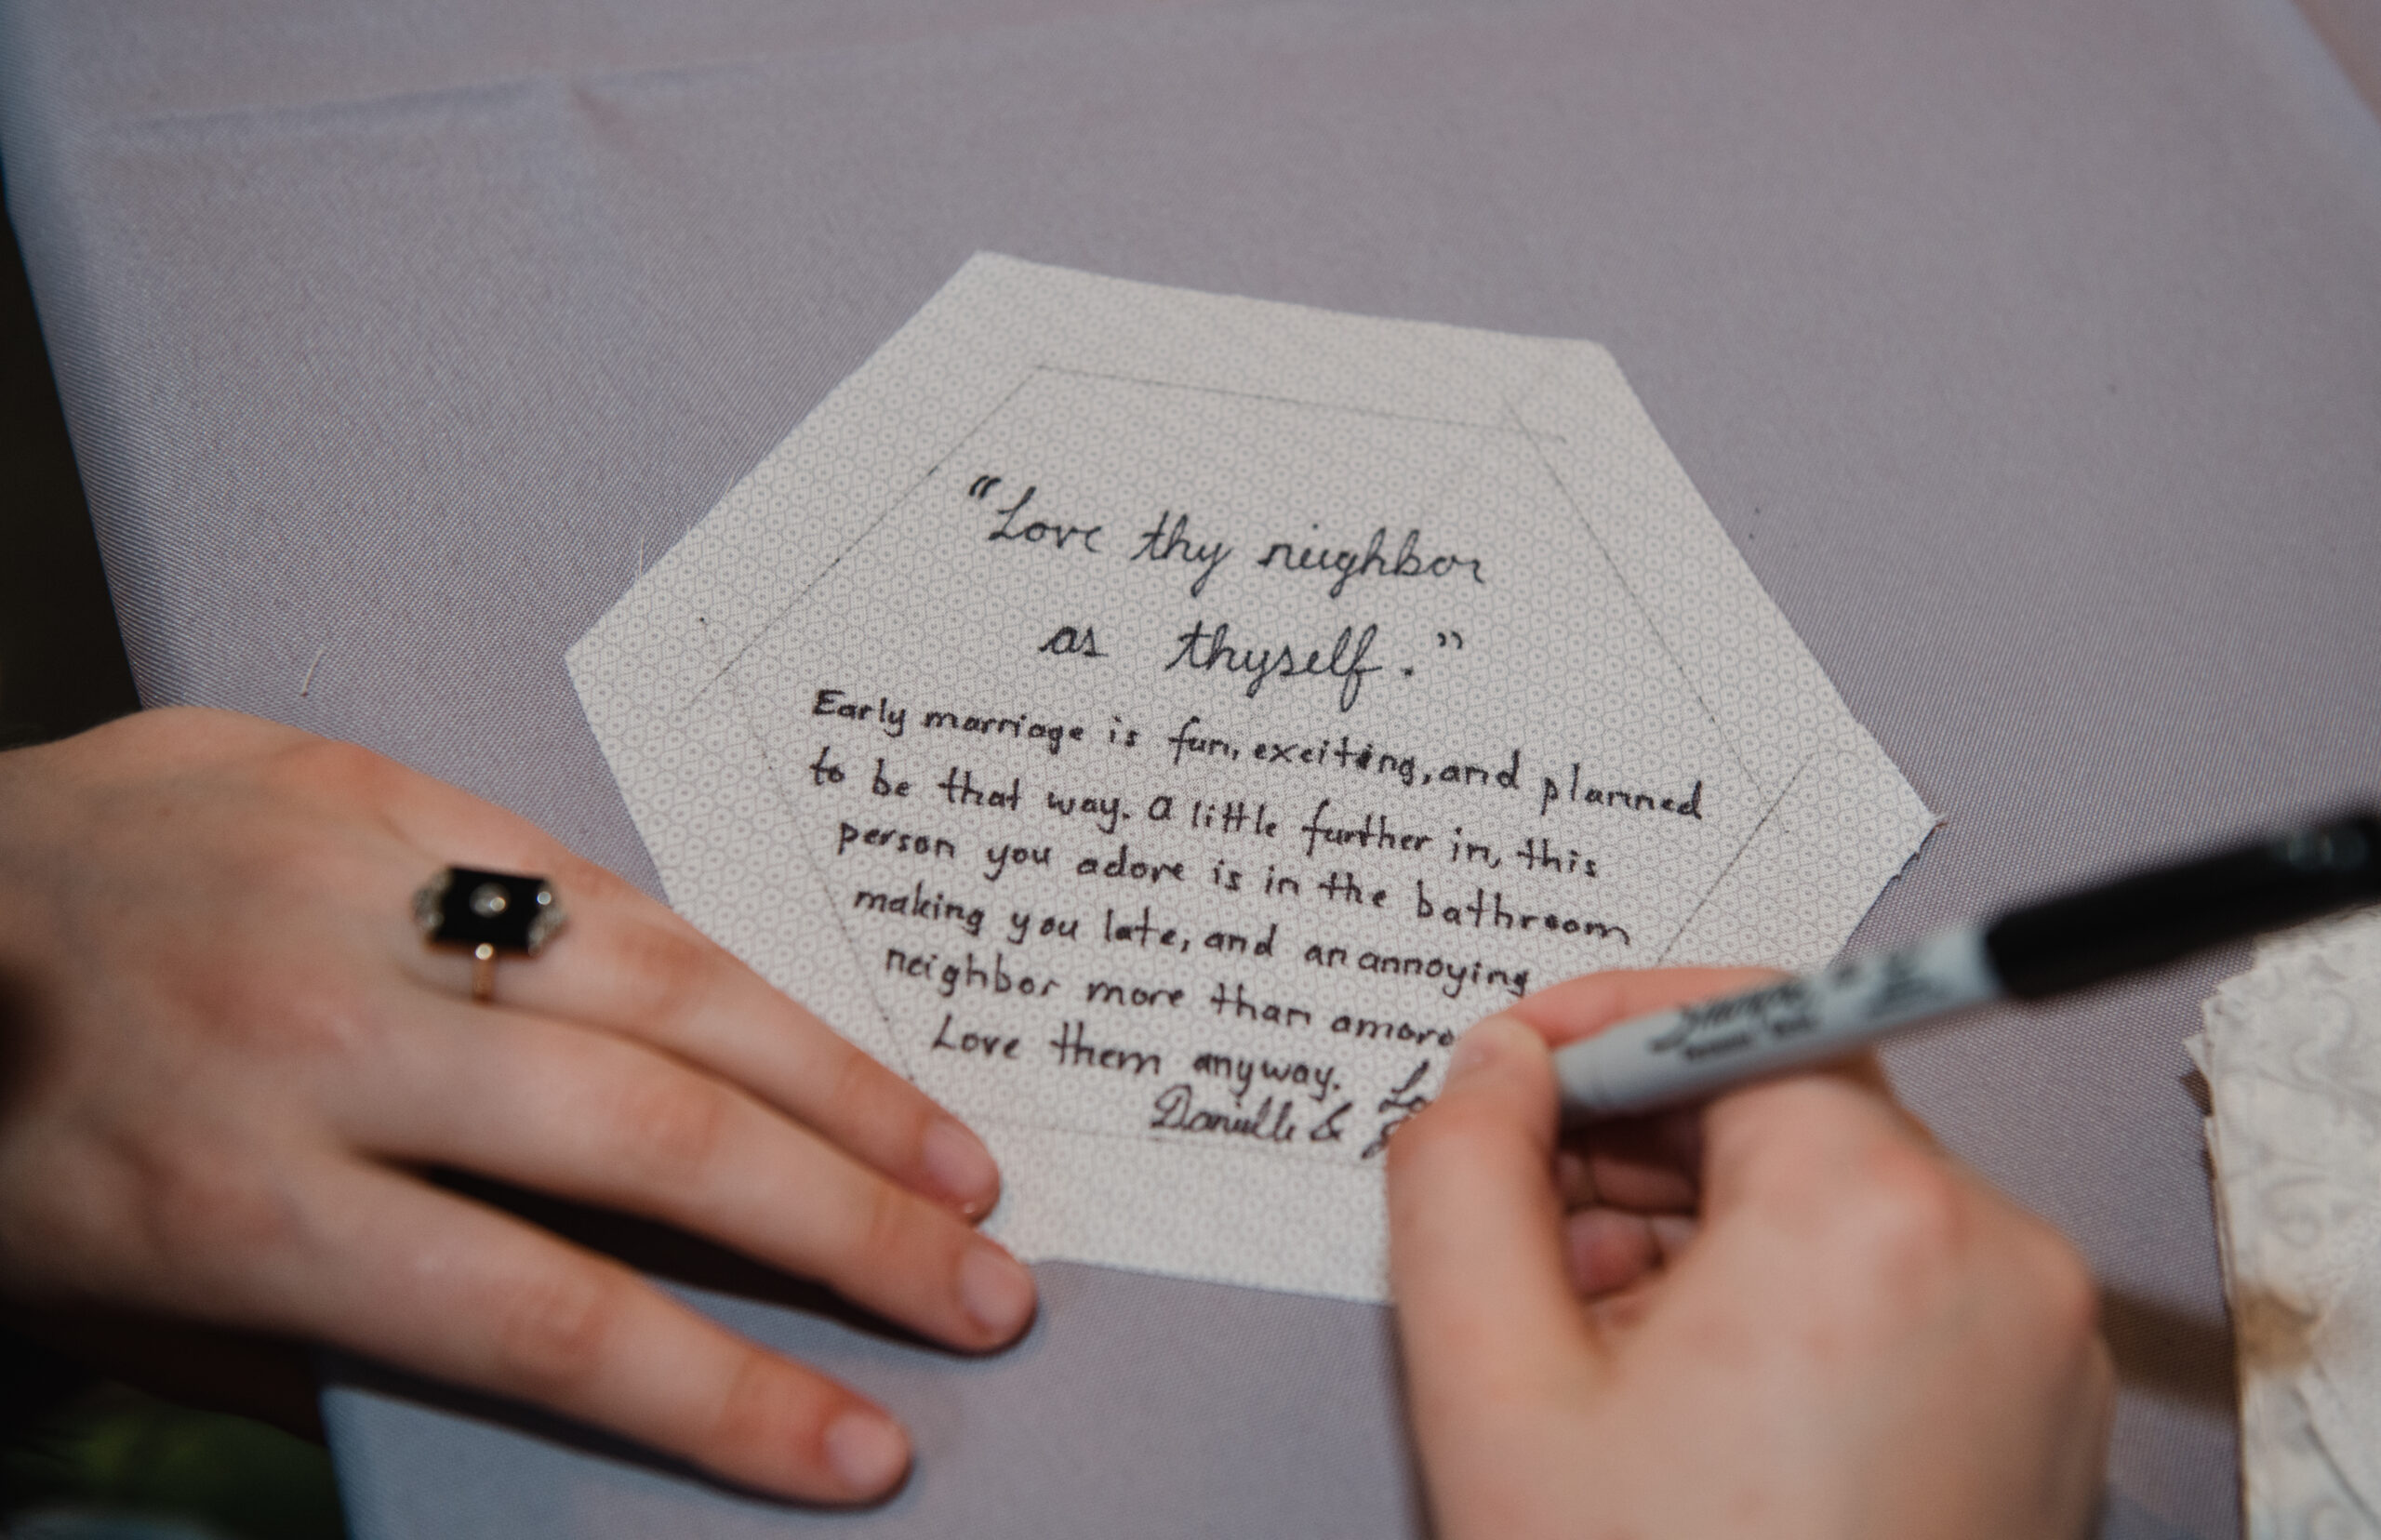 "Love thy neighbor
as thyself."
Early marriage is fun, exciting, and planned
to be that way. A little further in, this
person you adore is in the bathroom
making you late, and an annoying
neighbor more than
Love them anyway.
Danielle &